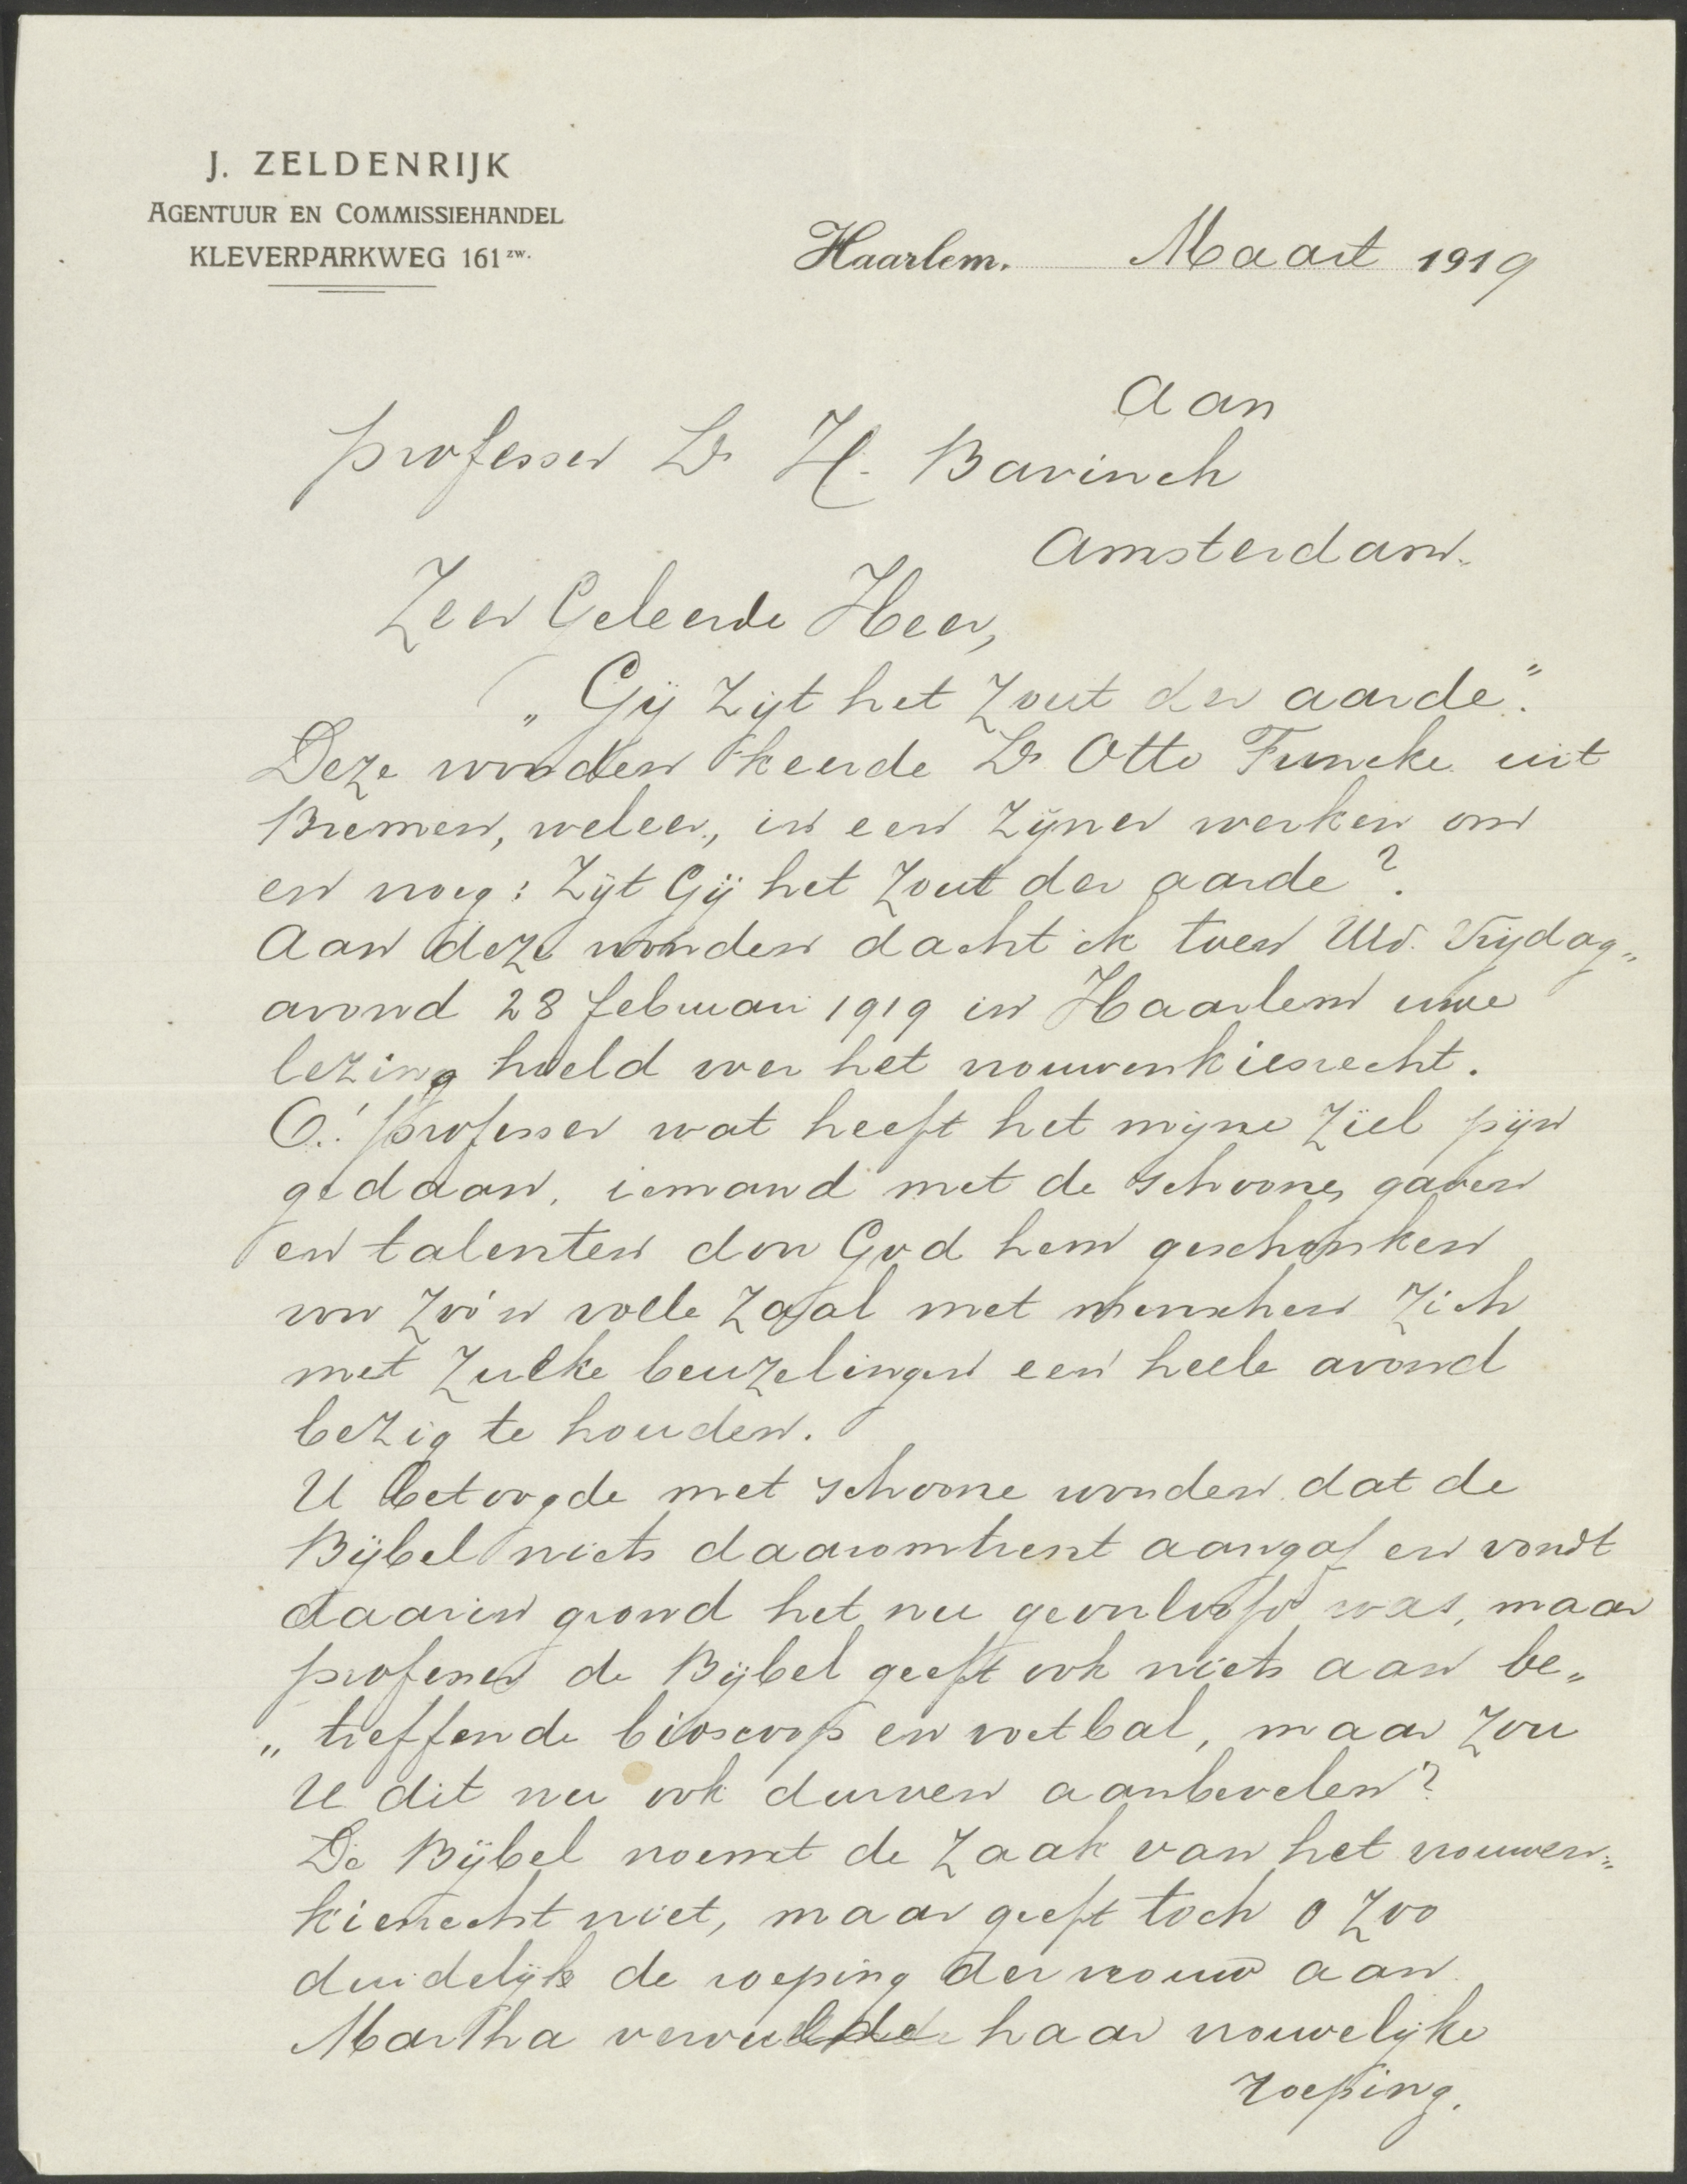 J. ZELDENRIJK
AGENTUUR EN COMMISSIEHANDEL
KLEVERPARKWEG 161 zw.
Haarlem. Maart 1919
Aan
professer Dr H. Bavinck
Amsterdam.
Zeer Geleerde Heer,
„Gij zijt het zout der aarde".
Deze woorden keerde Dr Otto Funcke uit
Bremen, weleer, in een zijner werken om
en vroeg: Zijt Gij het zout der aarde?
Aan deze woorden dacht ik toen Uw. Vrijdag„
avond 28 februari 1919 in Haarlem uwe
lezing hield over het vrouwenkiesrecht.
O! professer wat heeft het mijne ziel pijn
gedaan, iemand met de schoone gaven
en talenten door God hem geschonken
voor zoo'n volle zaal met menschen zich
met zulke beuzelingen een heele avond
bezig te houden.
U betoogde met schoone woorden dat de
Bijbel niets daaromtrent aangaf en vondt
daarin grond het nu geoorloofd was, maar
professer de Bijbel geeft ook niets aan be„
„treffende bioscoop en voetbal, maar zou
U dit nu ook durven aanbevelen?
De Bijbel noemt de zaak van het vrouwen„
kiesrecht niet, maar geeft toch o zoo
duidelijk de roeping der vrouw aan
Martha vervulde haar vrouwelijke
roeping.